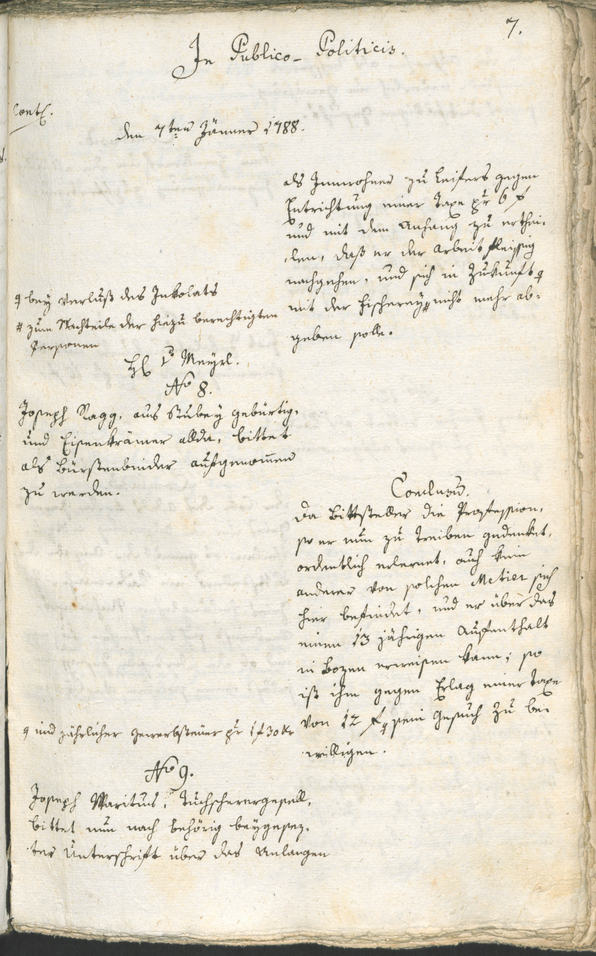 7.
In Publico-Politicis.
Cont.
den 7ten Jänner 1788.
als Innwohner zu Leifers gegen
Entrichtung einer Taxe pr 6 f
und mit dem Anhang zu erthei-
len, daß er der Arbeit fleissig
nachgehen, und sich in Zukunft
mit der Fischerey nicht mehr ab-
geben solle.
bey Verluß des Inkolats
# zum Nachteile der hiezu berechtigten
Personen
H Dr Meyrl.
No 8.
Joseph Ragg, aus Stubey gebürtig,
und Eisenkrämer allda, bittet
als Bürstenbinder aufgenommen
zu werden.
Conclusum.
Da Bittsteller die Profession,
so er nun zu treiben gedenket,
ordentlich erlernet, auch kein
anderer von solchen Metier sich
hier befindet, und er über das
einen 13 jährigen Aufenthalt
in Bozen erweisen kann; so
ist ihm gegen Erlag einer Taxe
von 12 f sein Gesuch zu be-
willigen.
und jährlicher Gewerbsteuer pr 1 f 30 kr
No 9.
Joseph Maritus, Tuchscherergesell,
bittet nun nach behörig beygesez-
ter Unterschrift über das Anlangen